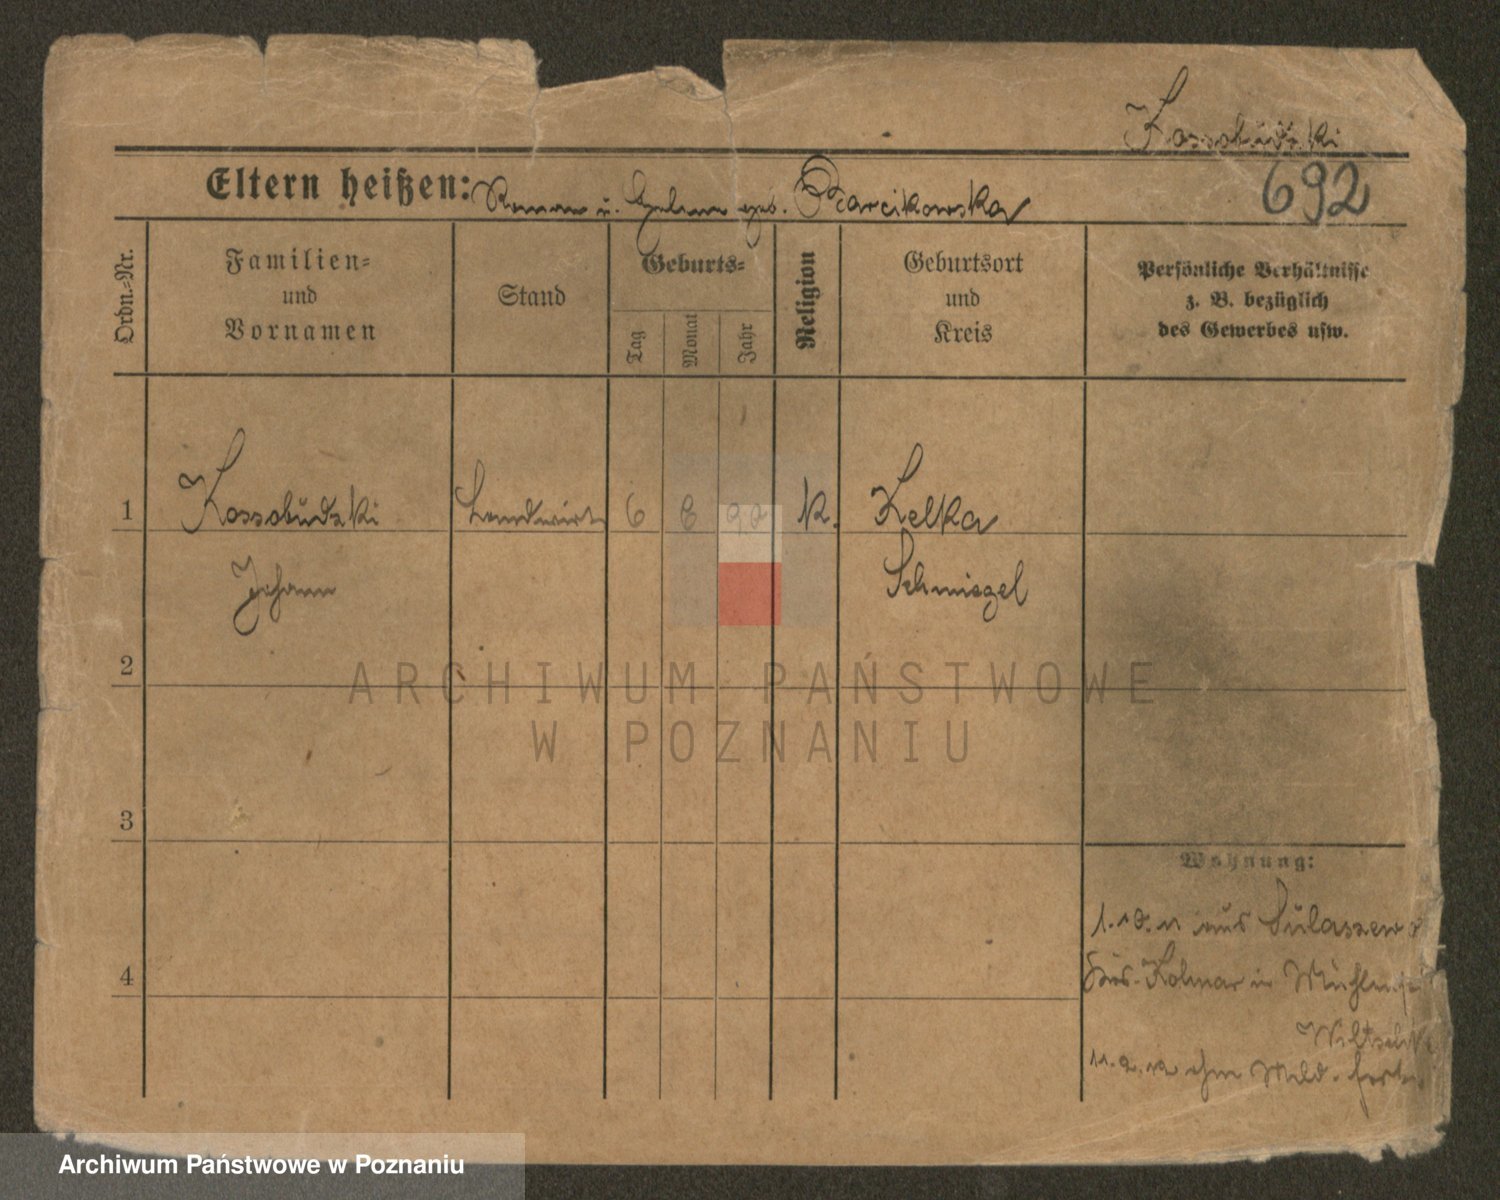 Kossobudzki
692
Eltern heißen: Roman u. Helena geb. Psarcikowska
Ordn.-Nr.
Familien-
und
Vornamen
Stand
Geburts-
Tag
Monat
Jahr
Religion
Geburtsort
und
Kreis
Persönliche Verhältnisse
z. B. bezüglich
des Gewerbes usw.
1
Kossobudzki
Landwirt
6
8
90
K.
Zelka
Johann
Schmiegel
2
3
4
Wohnung:
1.10.11 aus Sulaszewo
Krs. Kolmar in
11.2.12 ohne Meld. fort
ARCHIWUM PAŃSTWOWE
W POZNANIU
Archiwum Państwowe w Poznaniu